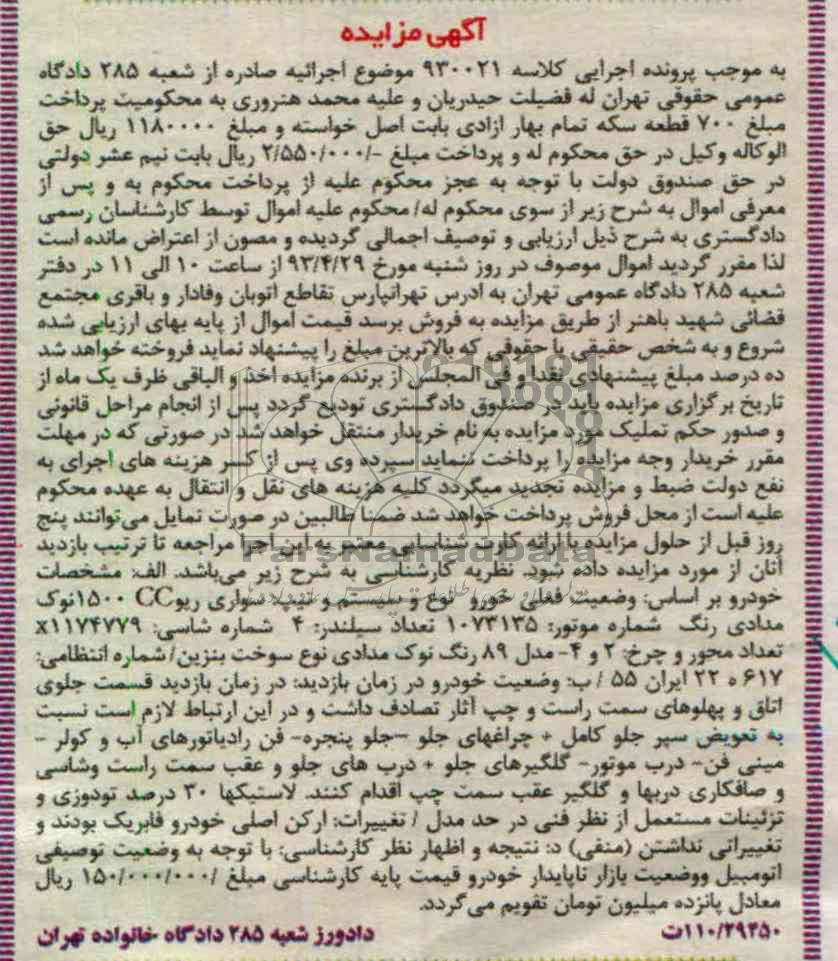 آگهی مزایده
به موجب پرونده اجرایی کلاسه ۹۳۰۰۲۱ موضوع اجرائیه صادره از شعبه ۲۸۵ دادگاه
عمومی حقوقی تهران له فضیلت حیدریان و علیه محمد هنروری به محکومیت پرداخت
مبلغ ۷۰۰ قطعه سکه تمام بهار ازادی بابت اصل خواسته و مبلغ ۱۱۸۰۰۰۰ ریال حق
الوکاله وکیل در حق محکوم له و پرداخت مبلغ -/۲/۵۵۰/۰۰۰ ریال بابت نیم عشر دولتی
در حق صندوق دولت با توجه به عجز محکوم علیه از پرداخت محکوم به و پس از
معرفی اموال به شرح زیر از سوی محکوم له/ محکوم علیه اموال توسط کارشناسان رسمی
دادگستری به شرح ذیل ارزیابی و توصیف اجمالی گردیده و مصون از اعتراض مانده است
لذا مقرر گردید اموال موصوف در روز شنبه مورخ ۹۳/۴/۲۹ از ساعت ۱۰ الی ۱۱ در دفتر
شعبه ۲۸۵ دادگاه عمومی تهران به ادرس تهرانپارس تقاطع اتوبان وفادار و باقری مجتمع
قضائی شهید باهنر از طریق مزایده به فروش برسد قیمت اموال از پایه بهای ارزیابی شده
شروع و به شخص حقیقی یا حقوقی که بالاترین مبلغ را پیشنهاد نماید فروخته خواهد شد
ده درصد مبلغ پیشنهادی نقدا و فی المجلس از برنده مزایده اخذ و الباقی ظرف یک ماه از
تاریخ برگزاری مزایده باید در صندوق دادگستری تودیع گردد پس از انجام مراحل قانونی
و صدور حکم تملیک مورد مزایده به نام خریدار منتقل خواهد شد در صورتی که در مهلت
مقرر خریدار وجه مزایده را پرداخت ننماید سپرده وی پس از کسر هزینه های اجرای به
نفع دولت ضبط و مزایده تجدید میگردد کلیه هزینه های نقل و انتقال به عهده محکوم
علیه است از محل فروش پرداخت خواهد شد ضمنا طالبین در صورت تمایل می‌توانند پنج
روز قبل از حلول مزایده با ارائه کارت شناسایی معتبر به این اجرا مراجعه تا ترتیب بازدید
آنان از مورد مزایده داده شود. نظریه کارشناسی به شرح زیر می‌باشد. الف: مشخصات
خودرو بر اساس: وضعیت فعلی خورو نوع و سیستم و تیپ سواری ریوCC ۱۵۰۰نوک
مدادی رنگ شماره موتور: ۱۰۷۳۱۳۵ تعداد سیلندر: ۴ شماره شاسی: x۱۱۷۴۷۷۹
تعداد محور و چرخ: ۲ و ۴- مدل ۸۹ رنگ نوک مدادی نوع سوخت بنزین/ شماره انتظامی:
۶۱۷ ه ۲۲ ایران ۵۵ / ب: وضعیت خودرو در زمان بازدید: در زمان بازدید قسمت جلوی
اتاق و پهلوهای سمت راست و چپ آثار تصادف داشت و در این ارتباط لازم است نسبت
به تعویض سپر جلو کامل + چراغهای جلو -جلو پنجره- فن رادیاتورهای آب و کولر -
مینی فن- درب موتور- گلگیرهای جلو + درب های جلو و عقب سمت راست وشاسی
و صافکاری دربها و گلگیر عقب سمت چپ اقدام کنند. لاستیکها ۳۰ درصد تودوزی و
تزئینات مستعمل از نظر فنی در حد مدل / تغییرات: ارکن اصلی خودرو فابریک بودند و
تغییراتی نداشتن (منفی) د: نتیجه و اظهار نظر کارشناسی: با توجه به وضعیت توصیفی
اتومبیل ووضعیت بازار ناپایدار خودرو قیمت پایه کارشناسی مبلغ /۱۵۰/۰۰۰/۰۰۰ ریال
معادل پانزده میلیون تومان تقویم می گردد.
۱۱۰/۲۹۴۵۰ت
دادورز شعبه ۲۸۵ دادگاه خانواده تهران
ParsNamadData